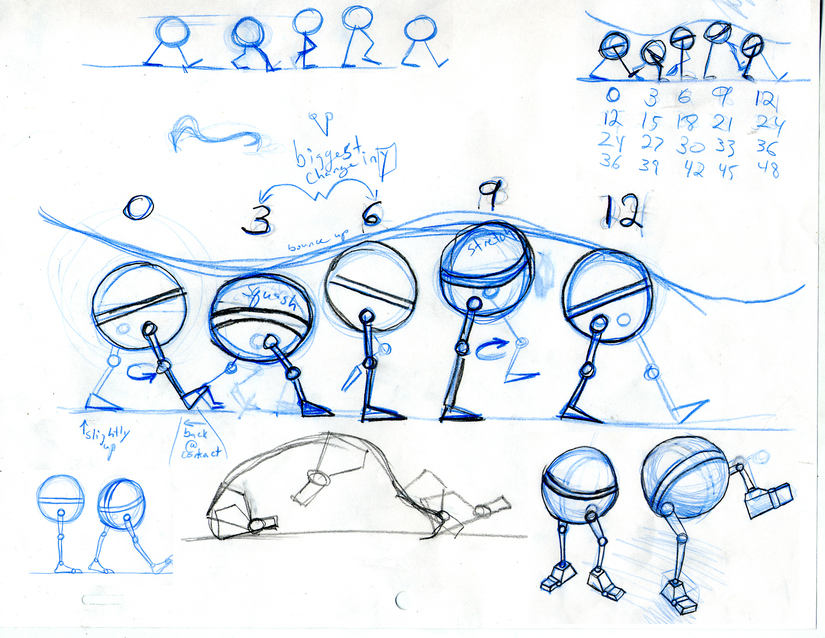 0 3 6 9 12
12 15 18 21 24
24 27 30 33 36
36 39 42 45 48
UP
biggest
change in Y
0 3 6 9 12
bounce up
Squash
stretch
slightly
up
back
@
contact